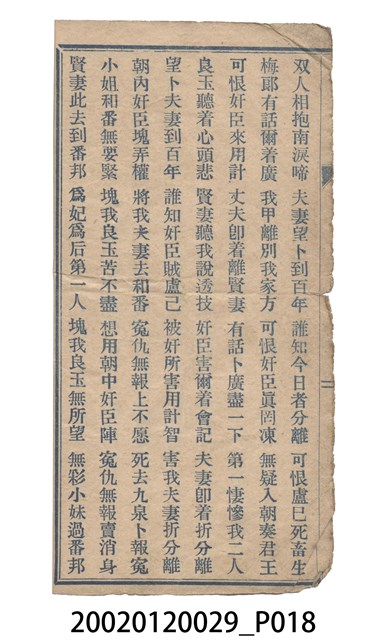 双人相抱南淚啼　夫妻望卜到百年　誰知今日者分離　可恨盧巳死畜生
梅郎有話爾着廣　我甲離別我家方　可恨奸臣眞罔凍　無疑入朝奏君王
可恨奸臣來用計　丈夫卽着離賢妻　有話卜廣盡一下　第一悽慘我二人
良玉聽着心頭悲　賢妻聽我說透技　奸臣害爾着會記　夫妻卽着折分離
望卜夫妻到百年　誰知奸臣賊盧己　被奸所害用計智　害我夫妻折分離
朝內奸臣塊弄權　將我夫妻去和番　冤仇無報上不愿　死去九泉卜報冤
小姐和番無要緊　塊我良玉苦不盡　想用朝中奸臣陣　冤仇無報賣消身
賢妻此去到番邦　爲妃爲后第一人　塊我良玉無所望　無彩小妹過番邦
20020120029_P018